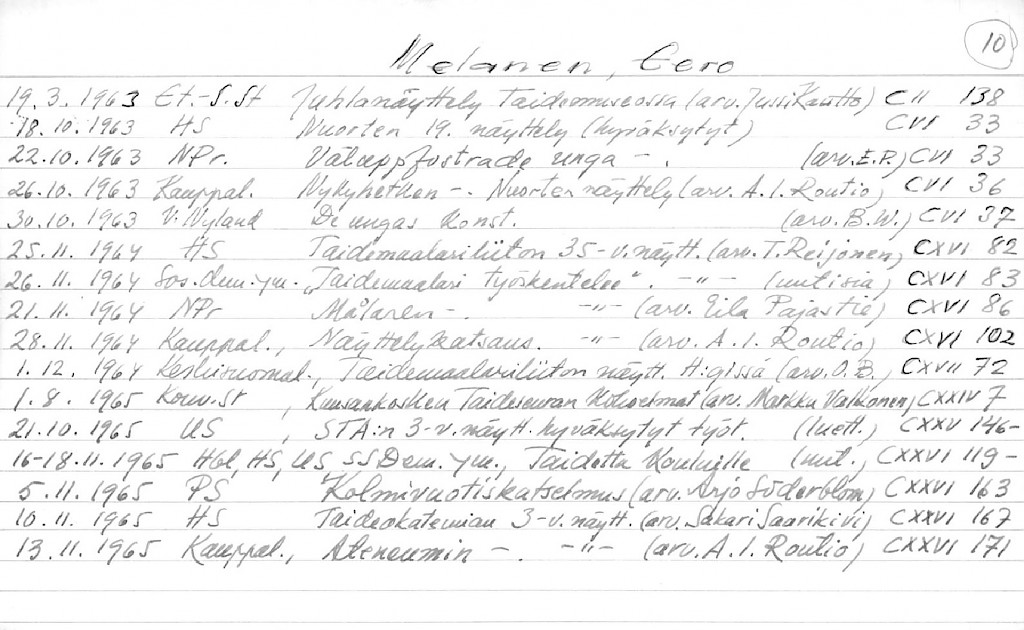 10
Melanen, Eero
19.3.1963 Et.-S.St Juhlanäyttely Taidemuseossa (arv. Jussi Kautto) CII 138
18.10.1963 HS Nuorten 19. näyttely (hyväksytyt) CVI 33
22.10.1963 NPr. Väluppfostrade unga -. (arv. E.P.) CVI 33
26.10.1963 Kauppal. Nykyhetken -. Nuorten näyttely (arv. A.I. Routio) CVI 36
30.10.1963 V. Nyland De ungas konst. (arv. B.W.) CVI 37
25.11.1964 HS Taidemaalariliiton 35-v. näytt. (arv. T. Reijonen) CXVI 82
26.11.1964 Sos.dem. ym. "Taidemaalari työskentelee". -"- (uutisia) CXVI 83
21.11.1964 NPr Målaren -. -"- (arv. Eila Pajastie) CXVI 86
28.11.1964 Kauppal., Näyttelykatsaus. -"- (arv. A.I. Routio) CXVI 102
1.12.1964 Keskisuomal., Taidemaalariliiton näytt. H:gissä (arv. O.B.) CXVII 72
1.8.1965 Kouv.St, Kuusankosken Taideseuran kokoelmat (arv. Markku Valkonen) CXXIV 7
21.10.1965 US, STA:n 3-v. näytt. hyväksytyt työt. (luett.) CXXV 146-
16-18.11.1965 Hbl, HS, US, SSDem. ym., Taidetta kouluille (uut., CXXVI 119-
5.11.1965 PS Kolmivuotiskatselmus (arv. Arjo Söderblom) CXXVI 163
10.11.1965 HS Taideakatemian 3-v. näytt. (arv. Sakari Saarikivi) CXXVI 167
13.11.1965 Kauppal., Ateneumin -. -"- (arv. A.I. Routio) CXXVI 171